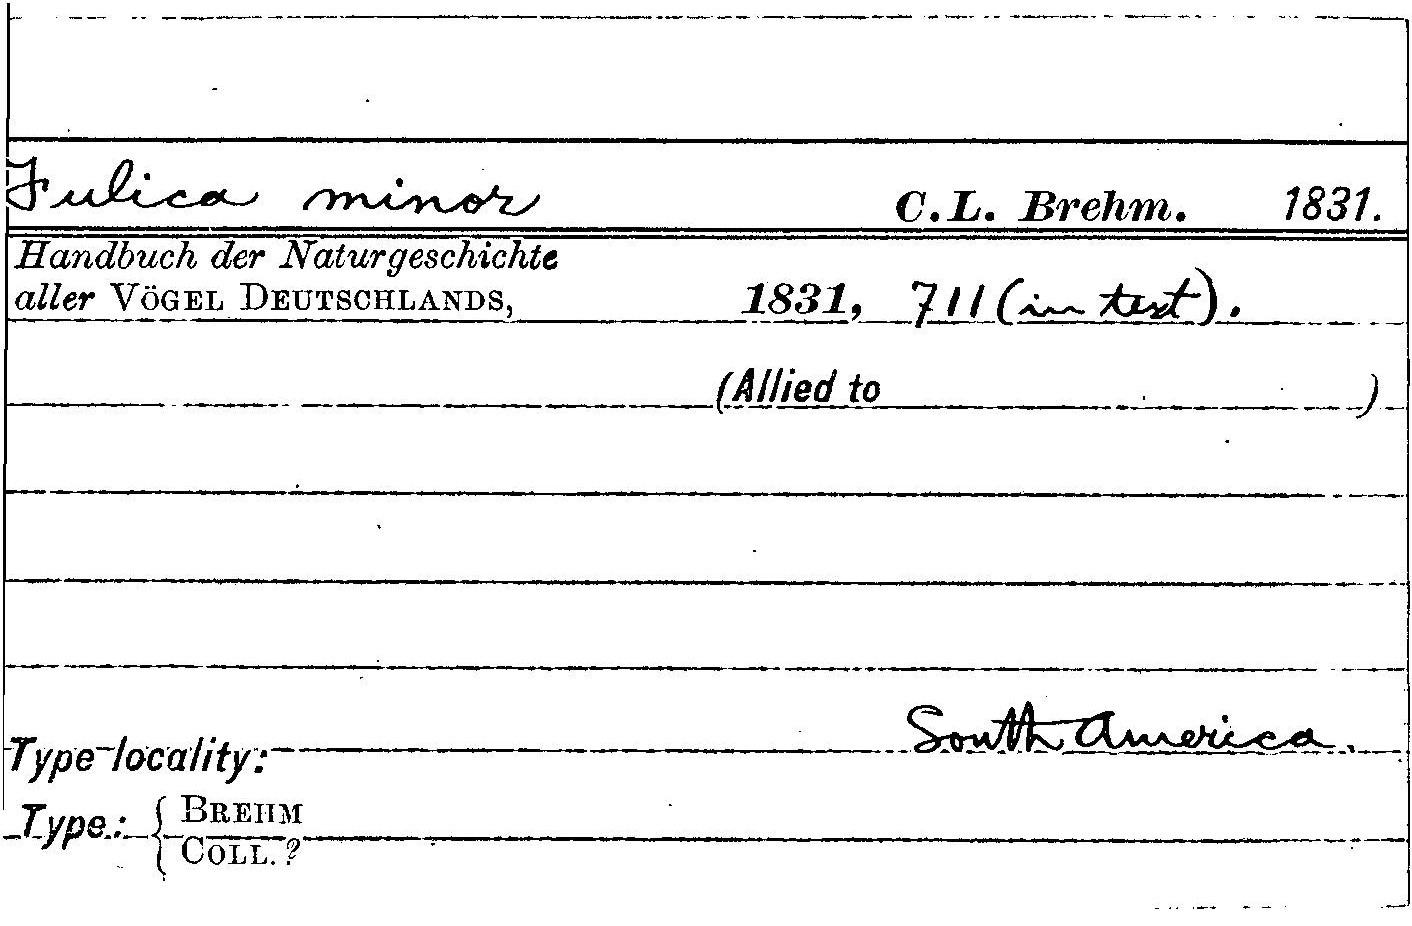 Fulica minor C. L. Brehm. 1831.
Handbuch der Naturgeschichte
aller VÖGEL DEUTSCHLANDS, 1831, 711 (in text).
(Allied to )
South America.
Type locality:
Type: { BREHM
COLL. ?